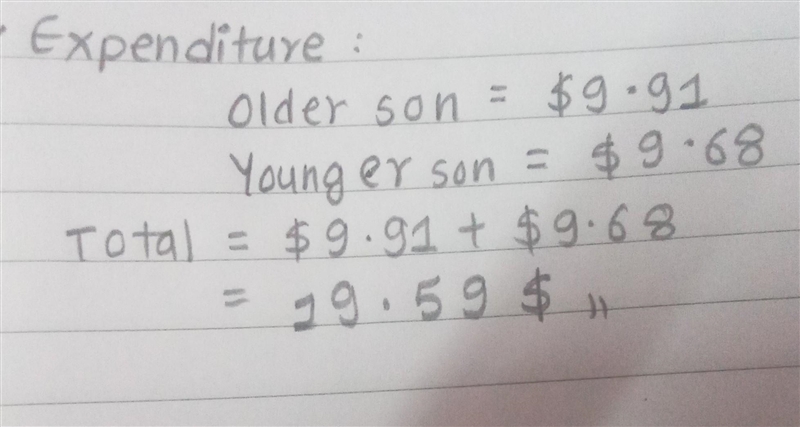 Expenditure :
Older son = $9.91
Younger son = $9.68
Total = $9.91 + $9.68
= 19.59 $ "